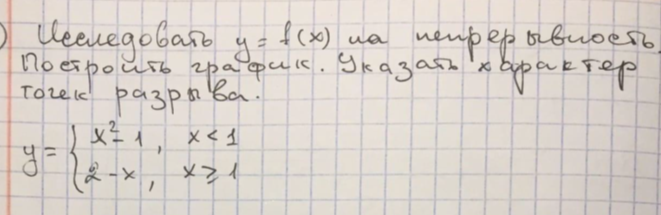 ) Исследовать y = f(x) на непрерывность.
Построить график. Указать характер
точек разрыва.
y = { x² - 1 , x < 1
2 - x , x ≥ 1